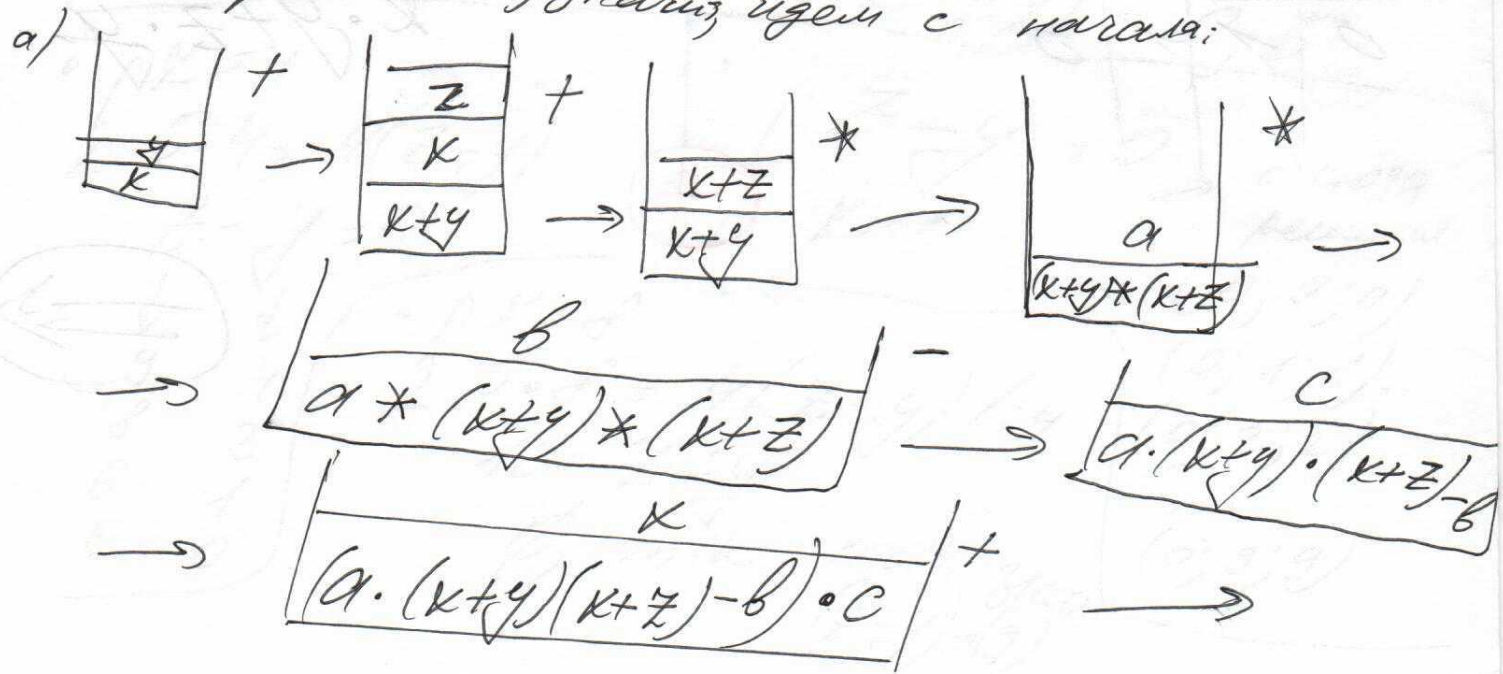 идем с начала:
а)
y
x
+
→
z
x
x+y
+
→
x+z
x+y
*
→
a
(x+y)*(x+z)
*
→
→
b
a * (x+y) * (x+z)
-
→
c
a·(x+y)·(x+z)-b
→
x
(a·(x+y)(x+z)-b)·c
+
→